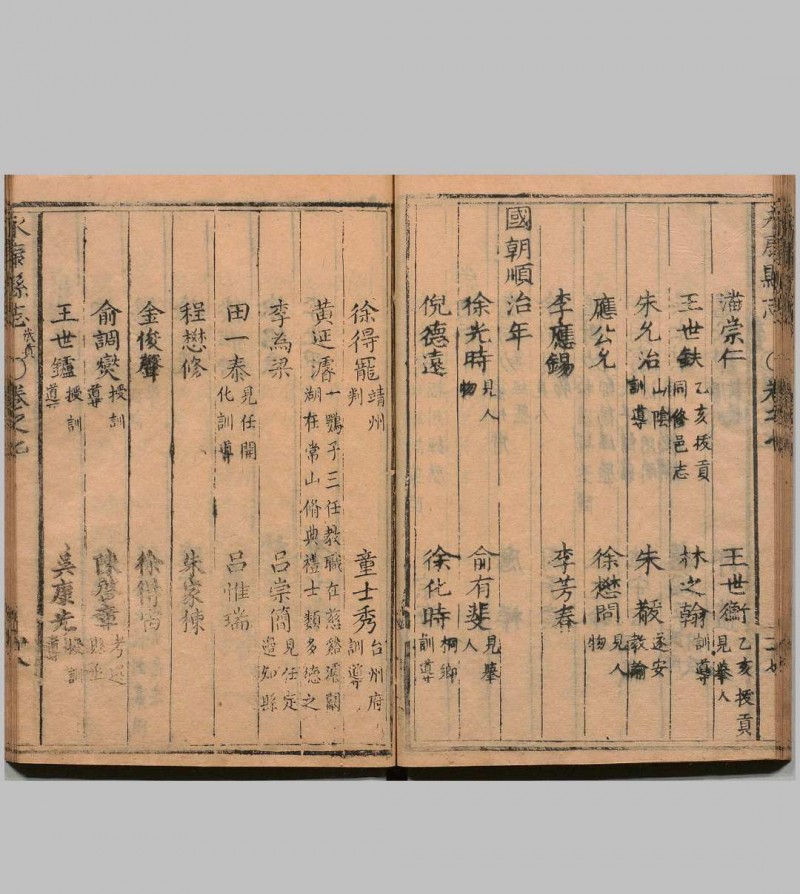 永康縣志 卷之七
潘崇仁 王世衡 乙亥拔貢見舉人
王世鈇 乙亥拔貢同修邑志 林之翰 訓導
朱允治 山陰訓導 朱 遂安教諭
應公允 徐懋問 見人物
李應錫 李芳春
國朝順治年
徐光時 見人物 俞有斐 見舉人
倪德遠 徐化時 桐鄉訓導
徐得寵 靖州判 童士秀 台州府訓導
黃延濬 一鶚子三任教職在慈谿濬闢湖在常山脩典禮士類多德之
李為梁 呂崇簡 見任定遠知縣
田一泰 見任開化訓導 呂惟瑞
程懋修 朱家棟
金俊聲 徐
俞調爕 授訓導 陳啓章 考選縣丞
王世鑪 授訓導 吳康先 授訓導
永康縣志 歲貢 卷之七